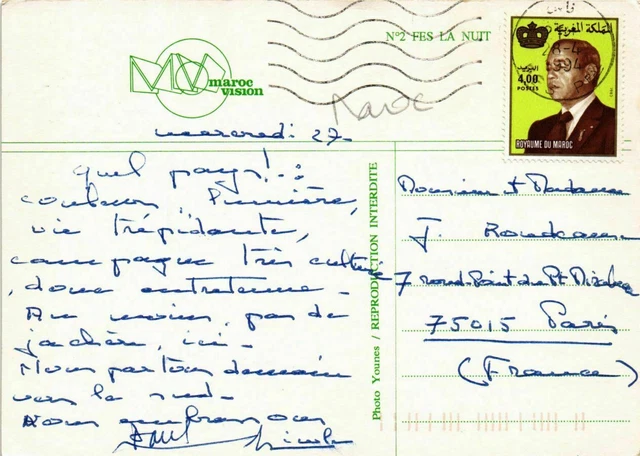 N°2 FES LA NUIT
MV maroc
vision
Maroc
المملكة المغربية
البريد
4,00
POSTES
ROYAUME DU MAROC
mercredi 27-
Quel pays!..
couleurs, lumière,
vie trépidante,
campagne très cultivée
, donc entretenue -
Au moins, pas de
jachère, ici -
Nous partons demain
vers le sud -
Nous embrassons
Paul Nicole
Photo Younes / REPRODUCTION INTERDITE
Monsieur et Madame
J.
7 rond-Point du Pt Mirabeau
75015 Paris
(France)